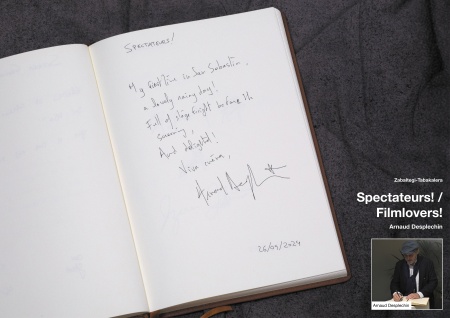 SPECTATEURS!
My first time in San Sebastian,
a lovely rainy day!
Full of stage fright before the
screening,
And delighted!
Viva
Arnaud Desplechin
26/09/2024
Zabaltegi-Tabakalera
Spectateurs! /
Filmlovers!
Arnaud Desplechin
Arnaud Desplechin